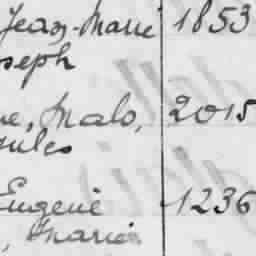 Jean-Marie 1853
oseph
e, Malo, 2015
ules
Eugène 1236
, Marie